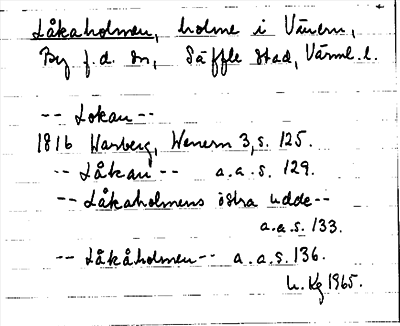 Låkaholmen, holme i Vänern,
By f.d. sn, Säffle stad, Värml. l.
-- Lokan --
1816 Warberg, Wenern 3, s. 125.
-- Låkan -- a.a.s. 129.
-- Låkaholmens östra udde --
a.a.s. 133.
-- Låkåholmen -- a.a.s. 136.
U. Kg 1965.